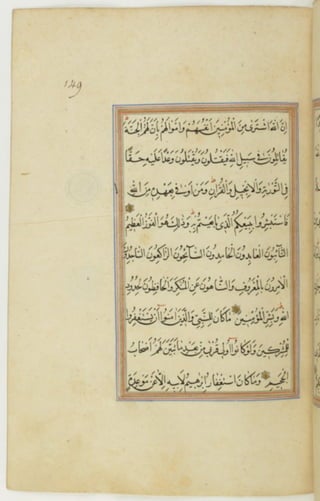 149
اِنَّ اللّٰهَ اشْتَرٰى مِنَ الْمُؤْمِنِينَ اَنْفُسَهُمْ وَاَمْوَالَهُمْ بِاَنَّ لَهُمُ الْجَنَّةَ
يُقَاتِلُونَ فِى سَبِيلِ اللّٰهِ فَيَقْتُلُونَ وَيُقْتَلُونَ وَعْدًا عَلَيْهِ حَقًّا
فِى التَّوْرٰيةِ وَالْاِنْجِيلِ وَالْقُرْاٰنِ وَمَنْ اَوْفٰى بِعَهْدِهِ مِنَ اللّٰهِ
فَاسْتَبْشِرُوا بِبَيْعِكُمُ الَّذِى بَايَعْتُمْ بِهِ وَذٰلِكَ هُوَ الْفَوْزُ الْعَظِيمُ
التَّائِبُونَ الْعَابِدُونَ الْحَامِدُونَ السَّائِحُونَ الرَّاكِعُونَ السَّاجِدُونَ
الْاٰمِرُونَ بِالْمَعْرُوفِ وَالنَّاهُونَ عَنِ الْمُنْكَرِ وَالْحَافِظُونَ لِحُدُودِ
اللّٰهِ وَبَشِّرِ الْمُؤْمِنِينَ مَا كَانَ لِلنَّبِىِّ وَالَّذِينَ اٰمَنُوا اَنْ يَسْتَغْفِرُوا
لِلْمُشْرِكِينَ وَلَوْ كَانُوا اُولِى قُرْبٰى مِنْ بَعْدِ مَا تَبَيَّنَ لَهُمْ اَصْحَابُ
الْجَحِيمِ وَمَا كَانَ اسْتِغْفَارُ اِبْرٰهِيمَ لِاَبِيهِ اِلَّا عَنْ مَوْعِدَةٍ